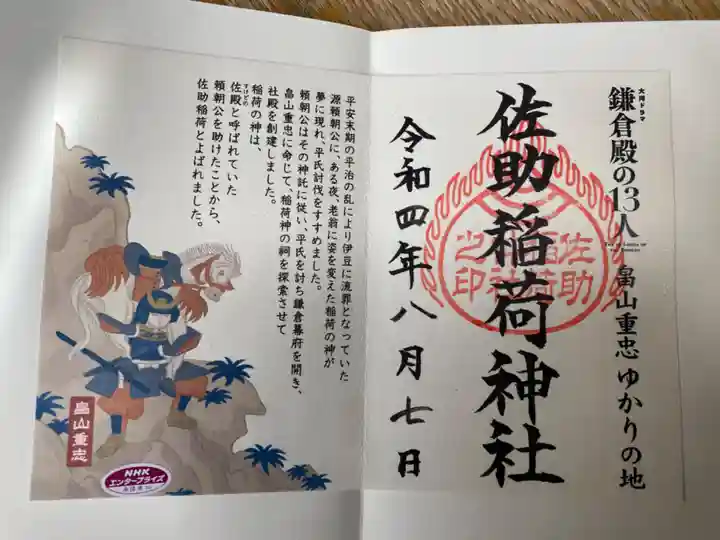 大河ドラマ
鎌倉殿の13人
畠山重忠 ゆかりの地
佐助稲荷神社
佐助稲荷社之印
令和四年八月七日
平安末期の平治の乱により伊豆に流罪となっていた
源頼朝公に、ある夜、老翁に姿を変えた稲荷の神が
夢に現れ、平氏討伐をすすめました。
頼朝公はその神託に従い、平氏を討ち鎌倉幕府を開き、
畠山重忠に命じて、稲荷神の祠を探索させて
社殿を創建しました。
稲荷の神は、
すけどの
佐殿と呼ばれていた
頼朝公を助けたことから、
佐助稲荷とよばれました。
畠山重忠
NHK
エンタープライズ